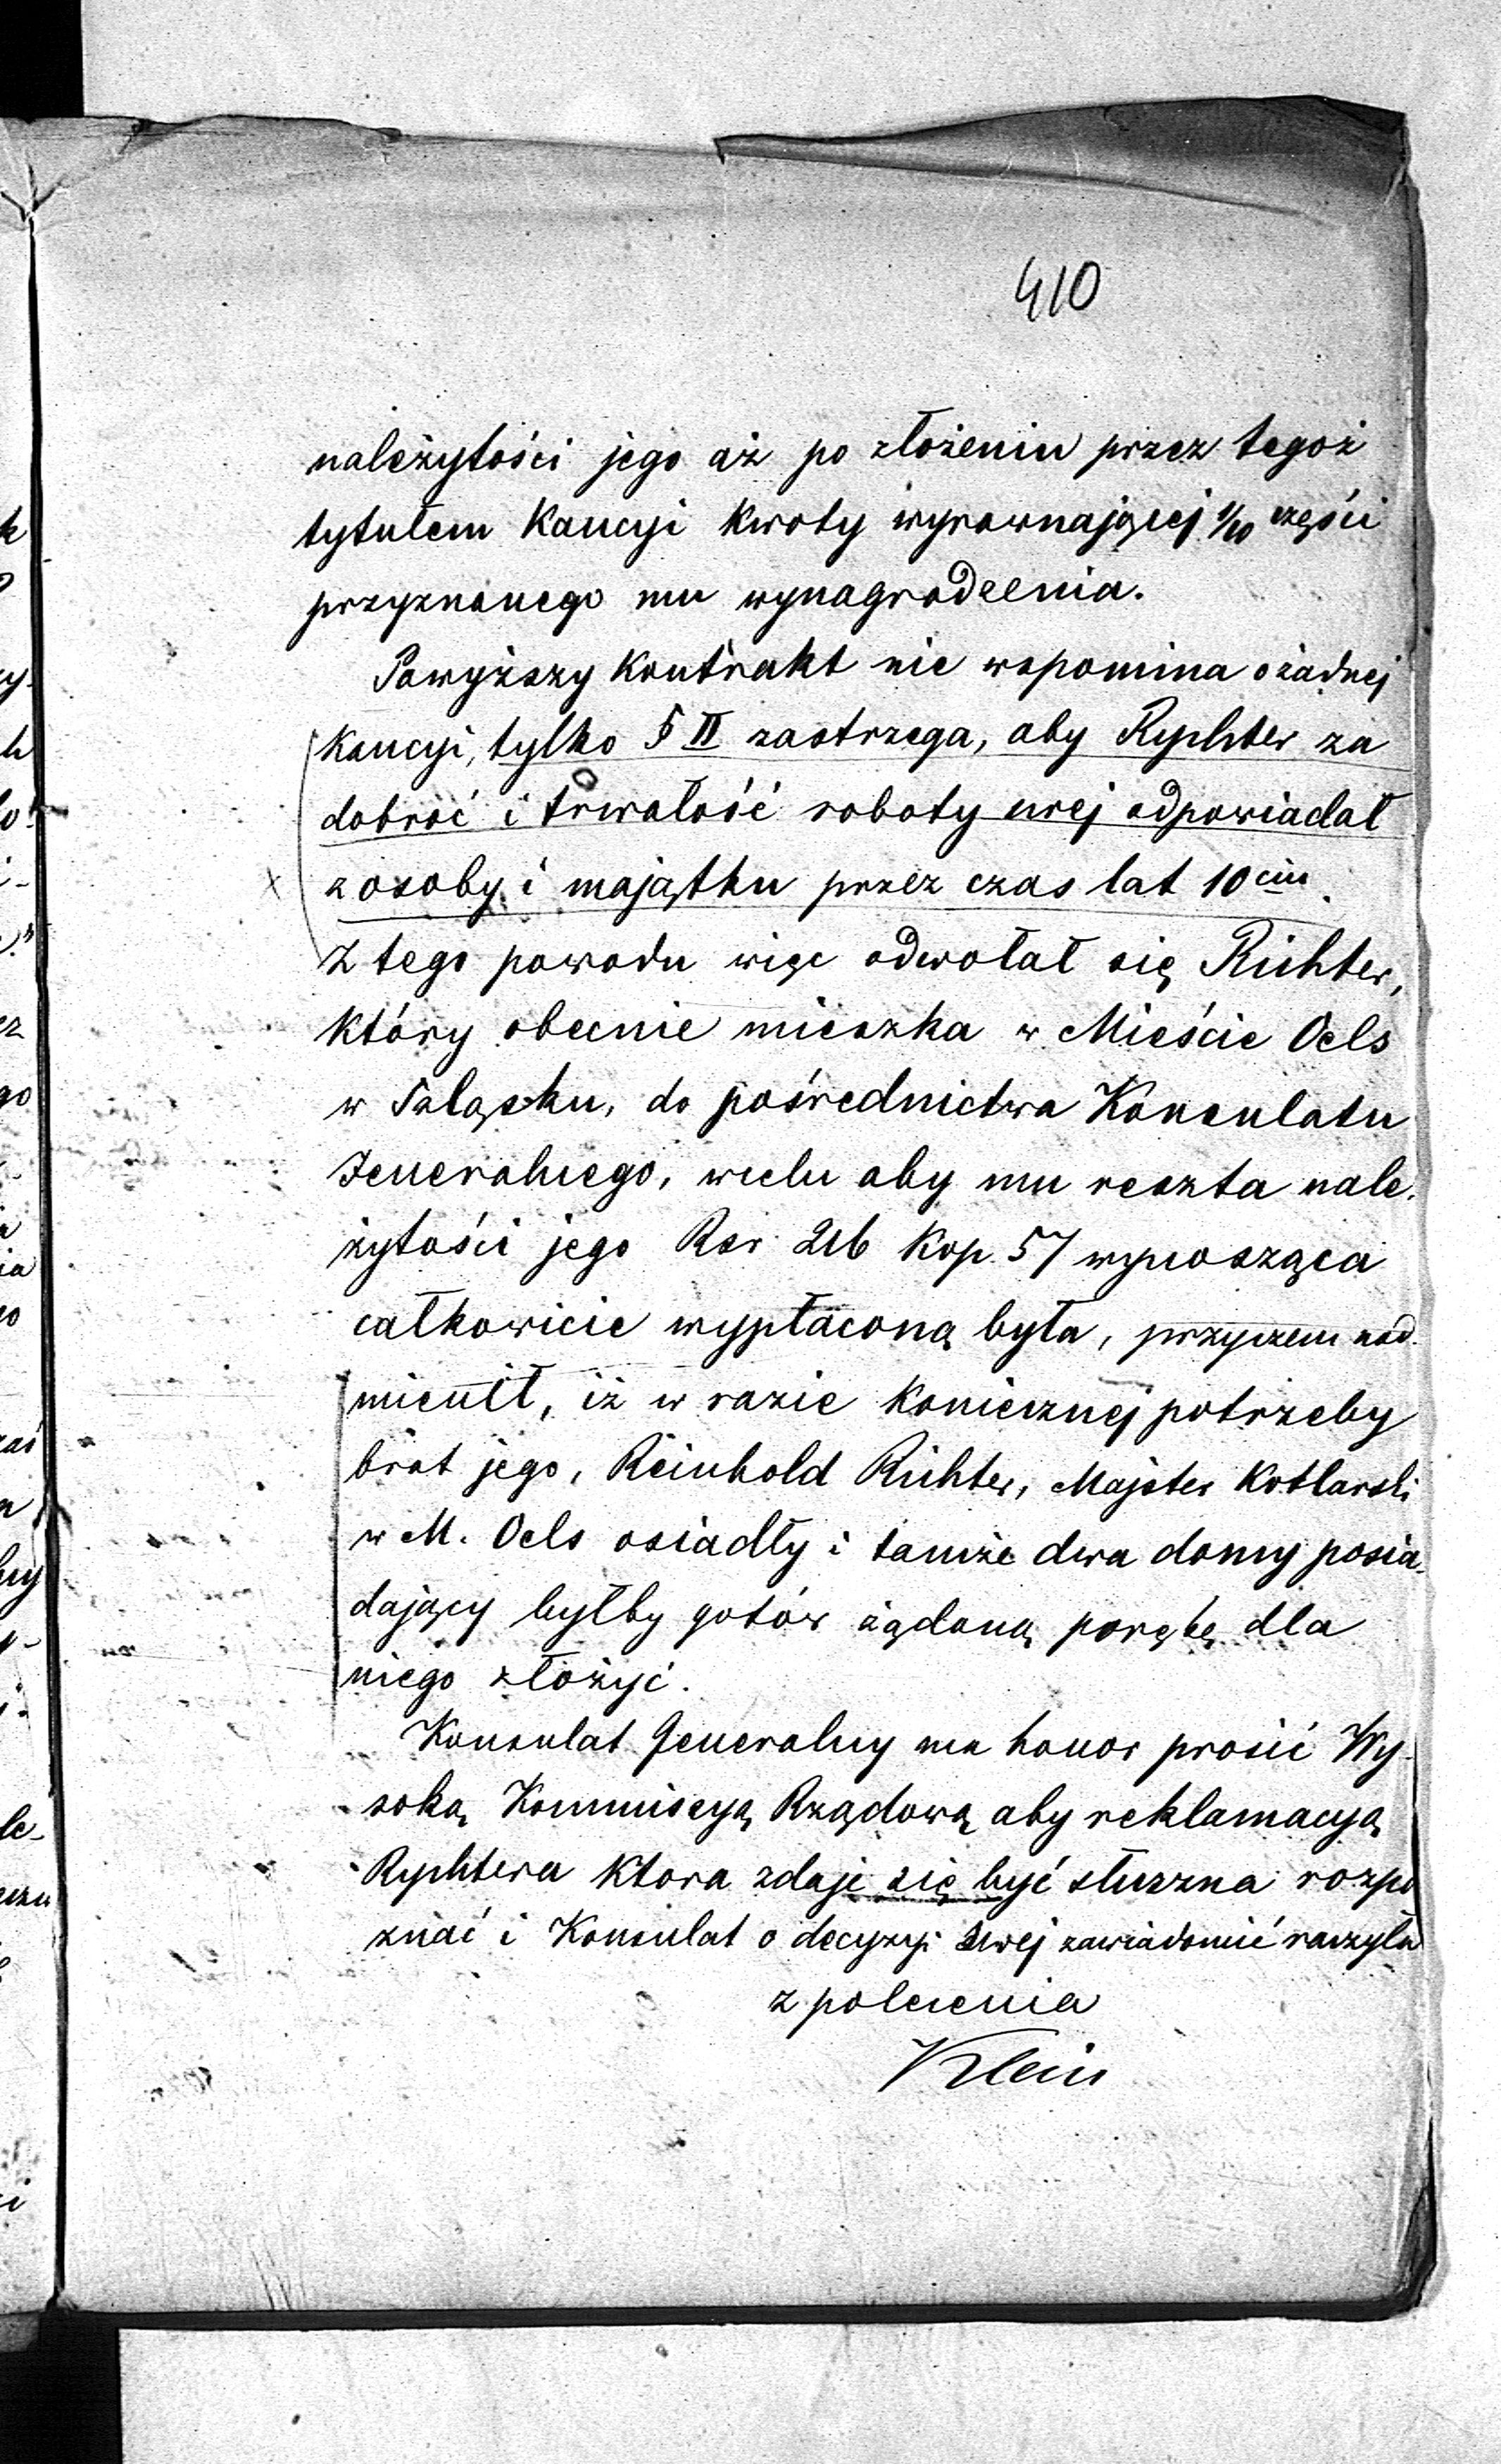 410
należytości jego aż po złożeniu przez tegoż
tytułem Kaucyi kwoty wyrownającej 1/10 części
przyznanego mu wynagrodzenia.
Powyższy Kontrakt nie wspomina o żadnej
Kaucyi, tylko § II zastrzega, aby Rychter za
dobroć i trwałość roboty swej odpowiadał
z osoby i majątku przez czas lat 10ciu.
Z tego powodu więc odwołał się Richter,
który obecnie mieszka w Mieście Oels
w Szląsku, do pośrednictwa Konsulatu
Jeneralnego, wcelu aby mu reszta nale-
żytości jego Rsr 216 Kop. 57 wynosząca
całkowicie wypłaconą była, przyczem nad-
mienił, iż w razie Koniecznej potrzeby
brat jego, Reinhold Richter, Majster Kotlarski
w M. Oels osiadły i tamże dwa domy posia-
dający byłby gotów żądaną porękę dla
niego złożyć.
Konsulat Generalny ma honor prosić Wy-
soką Kommisyą Rządową aby reklamacyą
Rychtera Ktora zdaje się być słuszna rozpo
znać i Konsulat o decyzyi swej zawiadomić raczyła
z polecenia
Klein